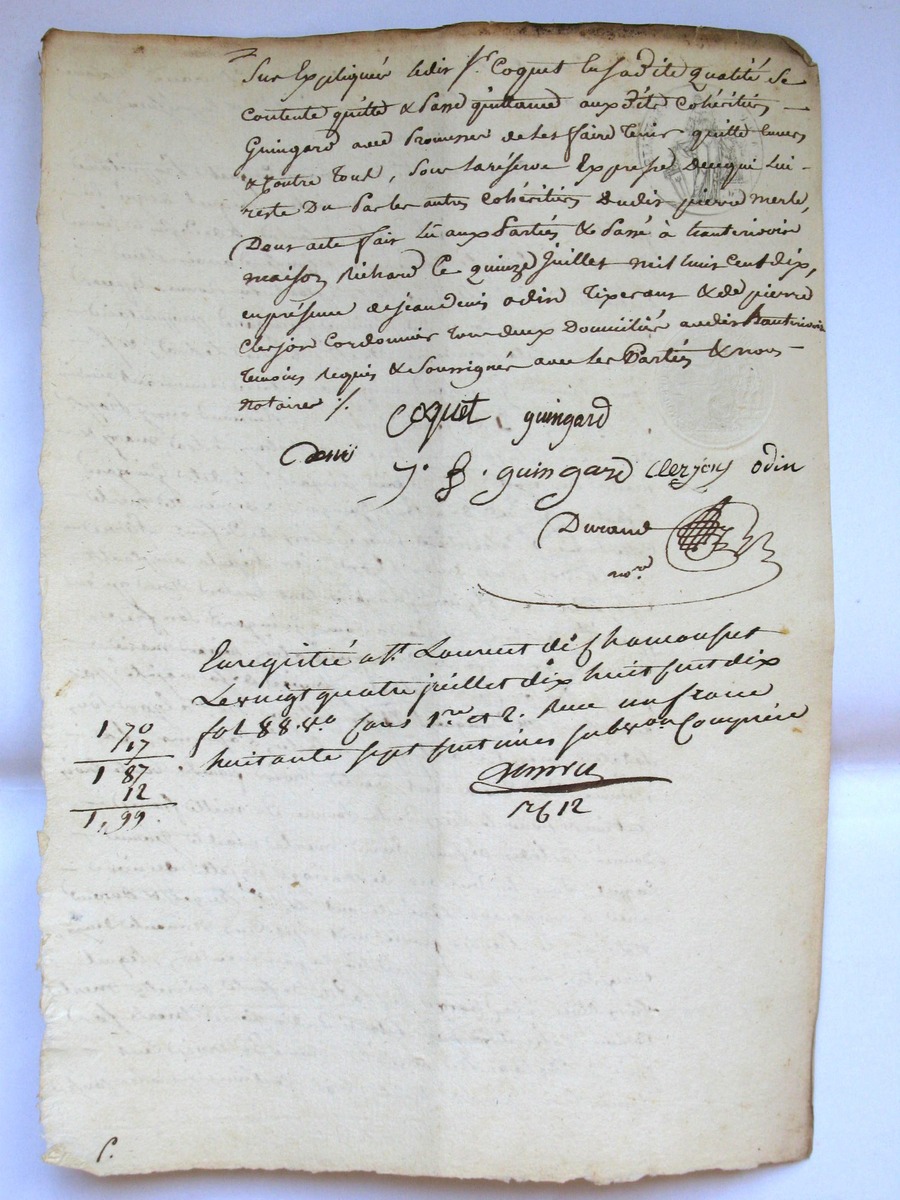 Sus Expliquée ledit Sr. Coquet En sadite qualité se
contente quitte & passe quittance aux dits cohéritiers
Guingard avec Promesse de les faire tenir quitte Envers
& Contre tous, sous la réserve Expresse de ce qui lui
reste Du Par les autres cohéritiers dudit pierre merle,
Dont acte fait lû aux Parties & Passé à hauterivoire
maison Richard Ce quinze Juillet mil huit cent dix,
en présence de jean denis odin Tixerant & de pierre
Clerjon Cordonnier tous deux Domiciliés audit hauterivoire
temoins requis & Soussignés avec les Parties & nous
notaire ./.
Coquet guingard
Denis
J. B. guingard Clerjon odin
Durand
nore
Enregistré a St. Laurent de Chamousset
Le vingt quatre juillet dix huit cent dix
fol 88. vo. Cases 1re. et 2. Reçu un franc
huitante sept centimes subvon. Comprise
1 70
17
1 87
12
1,99